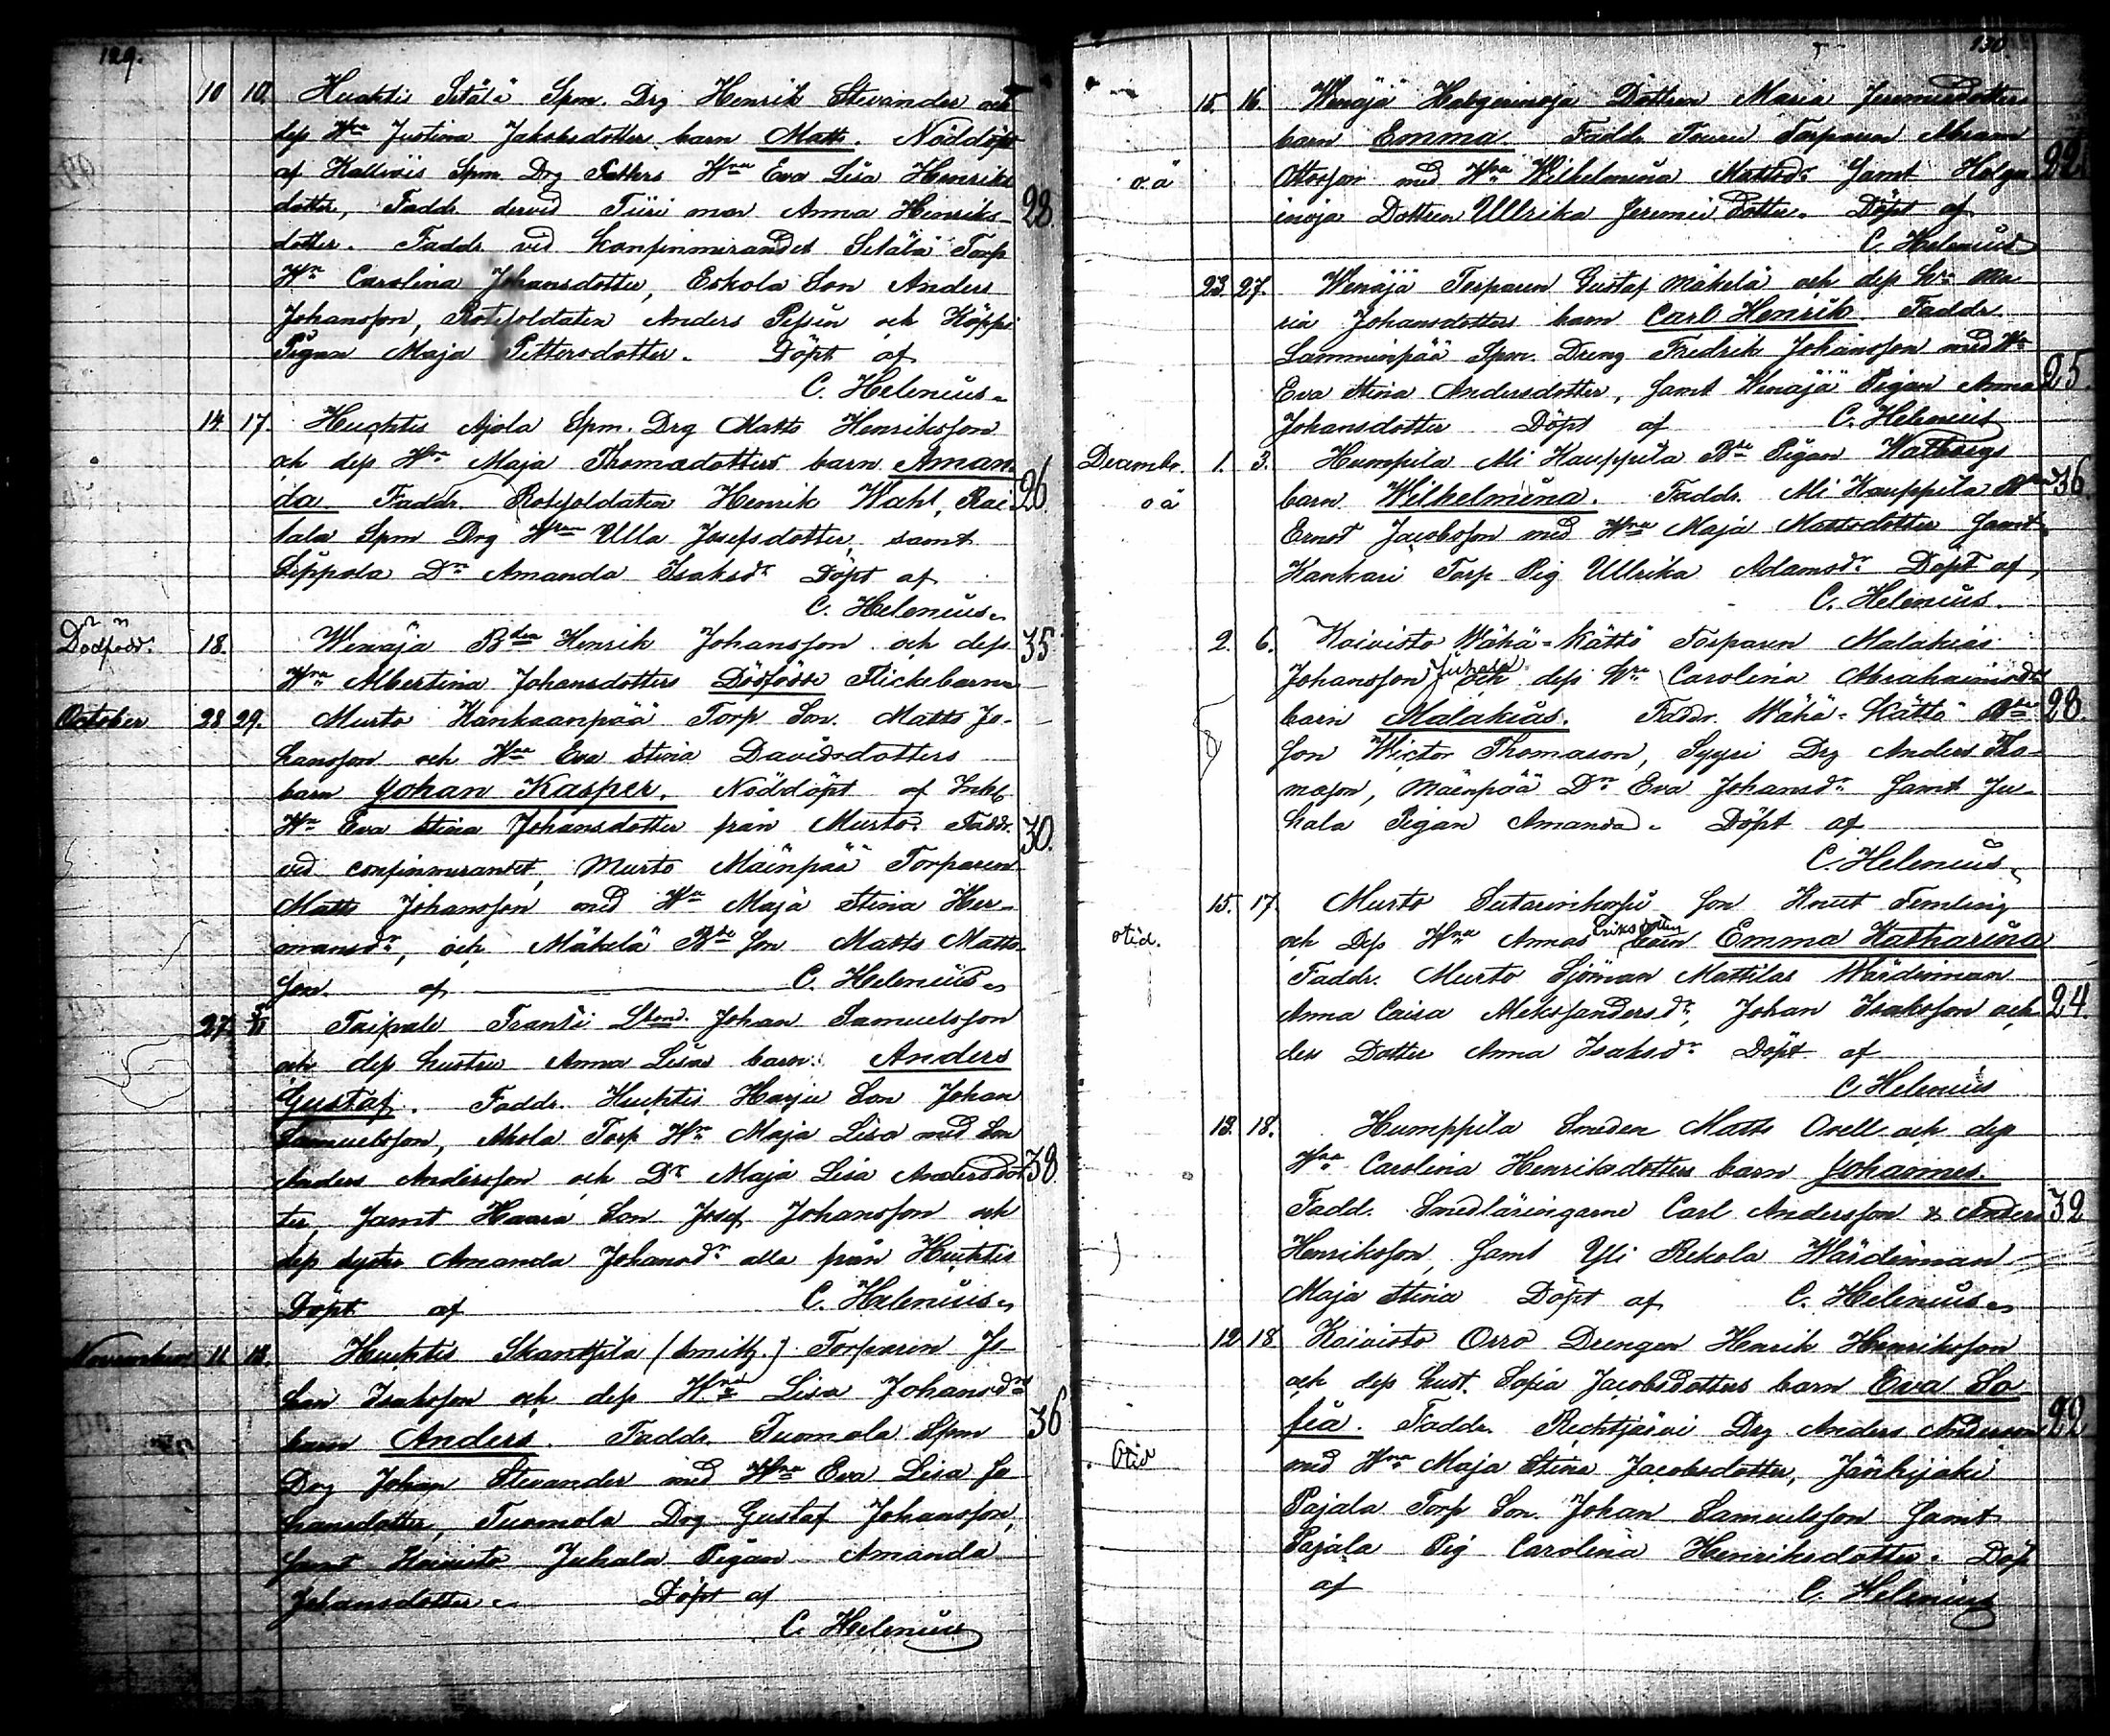 129.
10 10. Huhtis Sitälä Spm. Drg Henrik Stevander och
dess Hru Justina Jakobsdotters barn Matts. Nöddöpt
af Kallois Spm Drg Petters Hru Eva Lisa Henriks
dotter, Faddr dervid Türi mor Anna Henriks- 28.
dotter. Faddr vid konfirmerandet Setälä Torp
Hru Carolina Johansdotter, Eskola Son Anders
Johansson, Rotesoldaten Anders och Köppi
Pigan Maja Pettersdotter. Döpt af
C. Helenius
14. 17. Huhtis Ajola Spm. Drg Matts Henriksson
och dess Hru Maja Thomasdotters barn Aman-
da. Faddr. Rotesoldaten Henrik Wahl, Rai- 26
tala Spm Drg Hru Ulla Josefsdotter, samt
Sippola Dr Amanda Isaksdr Döpt af
C. Helenius
Dödfödd. 18. Wenäjä Bden Henrik Johansson och dess 35
Hru Albertina Johansdotters Dödfödde Flickebarn
October 28 29. Murto Kankaanpää Torp Son Matts Jo-
hansson och Hru Eva Stina Davidsdotters
barn Johan Kasper. Nöddöpt af Inhs
Hru Eva Stina Johansdotter från Murto. Faddr. 30.
vid confirmerandet, Murto Mäenpää Torparen
Matts Johansson med Hru Maja Stina Her-
mansdr, och Mäkelä Bde Son Matts Matts-
son. af C. Helenius
27. Taipale Franti Johan Samuelsson
och dess hustru Anna Lisas barn: Anders
Gustaf. Faddr. Huhtis Harju Son Johan
Samuelsson, Ahola Torp Hru Maja Lisa med Son
Anders Andersson och Dr Maja Lisa Andersdot- 38
ter, samt Haara Son Josef Johansson och
dess syster Amanda Johansdr alla från Huhtis
Döpt af C. Helenius
November 11 18. Huhtis Skanttila (Smitz.) Torparen Jo-
han Isaksson och dess Hru Lisa Johansdrs
barn Anders. Faddr. Tuomola Spm 36
Drg Johan Stevander med Hru Eva Lisa Jo
hansdotter, Tuomola Drg Gustaf Johansson,
samt Koivisto Juhala Pigan Amanda
Johansdotter. Döpt af
C. Helenius
130
15. 16. Wenäjä Halgerinoja Dottren Maria Jeremiedotters
barn Emma. Faddr. Torparen Abram
o.ä Ottosson med Hru Wilhelmina Mattsdr samt Halge 22.
inoja Dottren Ullrika Jeremiedotter. Döpt af
C. Helenius
23. 27. Wenäjä Torparen Gustaf Mäkelä och dess Hru Ma
ria Johansdotters barn Carl Henrik. Faddr.
Lamminpää Spm. Dreng Fredrik Johansson med Hru
Eva Stina Andersdotter, samt Wenäjä Pigan Anna 25.
Johansdotter Döpt af C. Helenius
December 1. 3. Humpila Ali Kauppila Bde Pigan Walborgs
o ä barn Wilhelmina. Faddr. Ali Kauppila Bden 36.
Ernst Jacobsson med Hru Maja Mattsdotter samt
Kankari Torp Pig Ullrika Adamsdr Döpt af
C. Helenius.
2. 6. Koivisto Wähä-Kättö Torparen Malakias
Johansson Juhala och dess Hru Carolina Abrahamsdrs
barn Malakias. Faddr. Wähä-Kättö Bde 28.
Son Wictor Thomason, Syyri Drg Anders Tho-
mason, Mäenpää Dr Eva Johansdr samt Ju-
hala Pigan Amanda. Döpt af
C. Helenius
15. 17. Murto Sutarinkorpi Son Knut Femling
otid. och dess Hru Annas Eriksdotters barn Emma Katharina
Faddr. Murto Sjöman Mattilas Wärdinnan
Anna Caisa Aleksandersdr, Johan Isaksson och 24.
des Dotter Anna Isaksdr Döpt af
C Helenius
13. 18. Humppila Smeden Matts Orell och dess
Hru Carolina Henriksdotters barn Johannes.
Fadd. Smedläringarne Carl Andersson & Anders 32
Henriksson, samt Yli Rekola Wärdinnan
Maja Stina Döpt af C. Helenius
12. 18 Koivisto Orro Drengen Henrik Henriksson
och dess hust. Sofia Jacobsdotters barn Eva So
fia. Faddr. Rechtjärvi Drg Anders Andersson 22
Otid med Hru Maja Stina Jacobsdotter, Jänhijoki
Pajala Torp Son Johan Samuelsson samt
Pajala Pig Carolina Henriksdotter. Döp
af C. Helenius